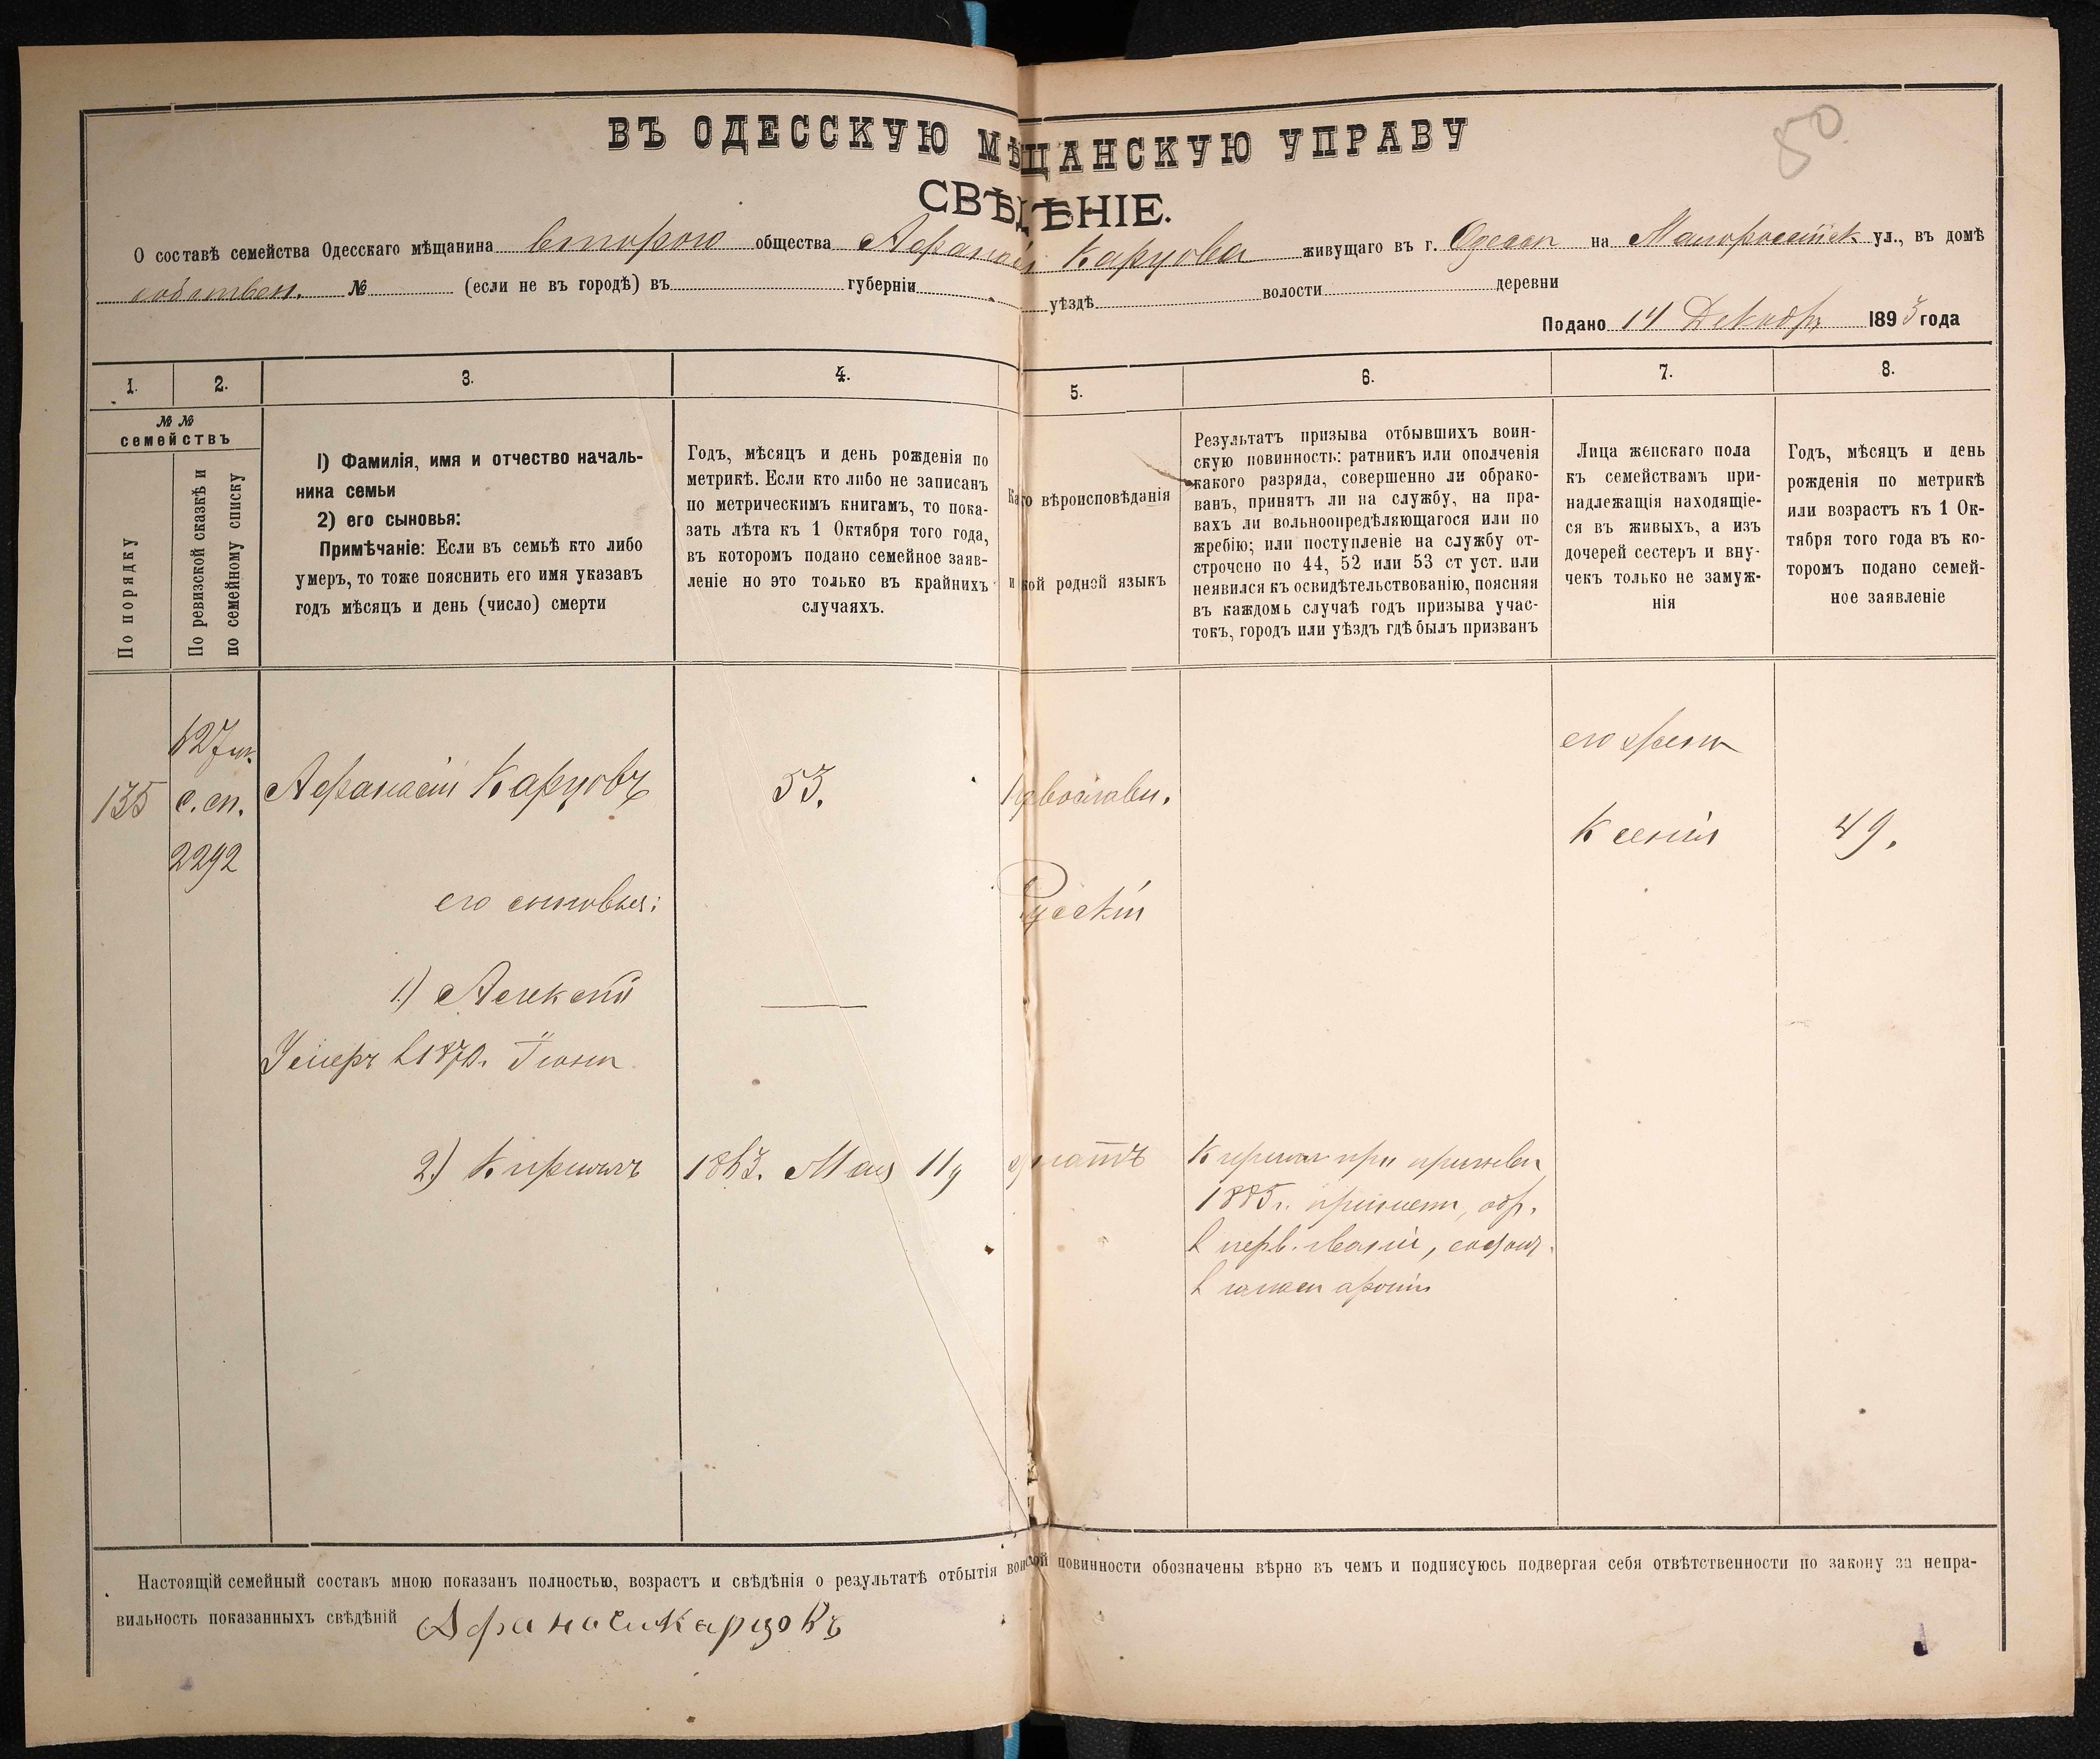 80
ВЪ ОДЕССКУЮ МѢЩАНСКУЮ УПРАВУ
СВѢДѢНІЕ.
О составѣ семейства Одесскаго мѣщанина второго общества Афанасія Карцова живущаго въ г. Одессѣ на Малороссійск ул., въ домѣ
собствен. № (если не въ городѣ) въ губерніи уѣздѣ волости деревни
Подано 14 Декабр 1893 года
1. 2. 3. 4. 5. 6. 7. 8.
№ №
семействъ
По порядку
По ревизской сказкѣ и
по семейному списку
1) Фамилія, имя и отчество началь-
ника семьи
2) его сыновья:
Примѣчаніе: Если въ семьѣ кто либо
умеръ, то тоже пояснить его имя указавъ
годъ мѣсяцъ и день (число) смерти
Годъ, мѣсяцъ и день рожденія по
метрикѣ. Если кто либо не записанъ
по метрическимъ книгамъ, то пока-
зать лѣта къ 1 Октября того года,
въ которомъ подано семейное заяв-
леніе но это только въ крайнихъ
случаяхъ.
Каго вѣроисповѣданія
и кой родной языкъ
Результатъ призыва отбывшихъ воин-
скую повинность: ратникъ или ополченія
какого разряда, совершенно ли обрако-
ванъ, принятъ ли на службу, на пра-
вахъ ли вольноопредѣляющагося или по
жребію; или поступленіе на службу от-
строчено по 44, 52 или 53 ст уст. или
неявился къ освидѣтельствованію, поясняя
въ каждомъ случаѣ годъ призыва учас-
токъ, городъ или уѣздъ гдѣ былъ призванъ
Лица женскаго пола
къ семействамъ при-
надлежащія находящіе-
ся въ живыхъ, а изъ
дочерей сестеръ и вну-
чекъ только не замуж-
нія
Годъ, мѣсяцъ и день
рожденія по метрикѣ
или возрастъ къ 1 Ок-
тября того года въ ко-
торомъ подано семей-
ное заявленіе
135
с. сп.
2292
Афанасій Карцовъ
53.
Православн.
его жена
Ксенія
49.
его сыновья:
Русскій
1.) Алексѣй
Умеръ в 1870. Іюня
2.) Кирилъ
1863. Мая 11
Кирилъ при призывѣ
1885 г.
в перв.
в
Настоящій семейный составъ мною показанъ полностью, возрастъ и свѣдѣнія о результатѣ отбытія воинской повинности обозначены вѣрно въ чемъ и подписуюсь подвергая себя отвѣтственности по закону за непра-
вильность показанныхъ свѣдѣній Афанасикарцовъ